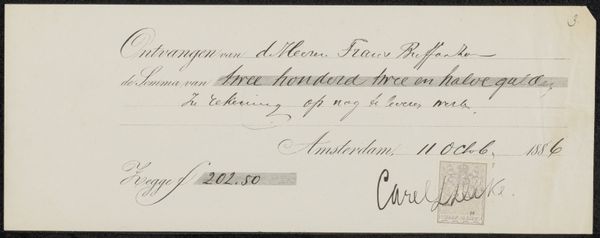 3
Ontvangen van de Heeren Frans Buffa &
de Somma van twee honderd twee en halve gulden
in rekening op nog te leveren werk
Amsterdam, 11 Octob. 1886
Zegge ƒ 202.50
Carel